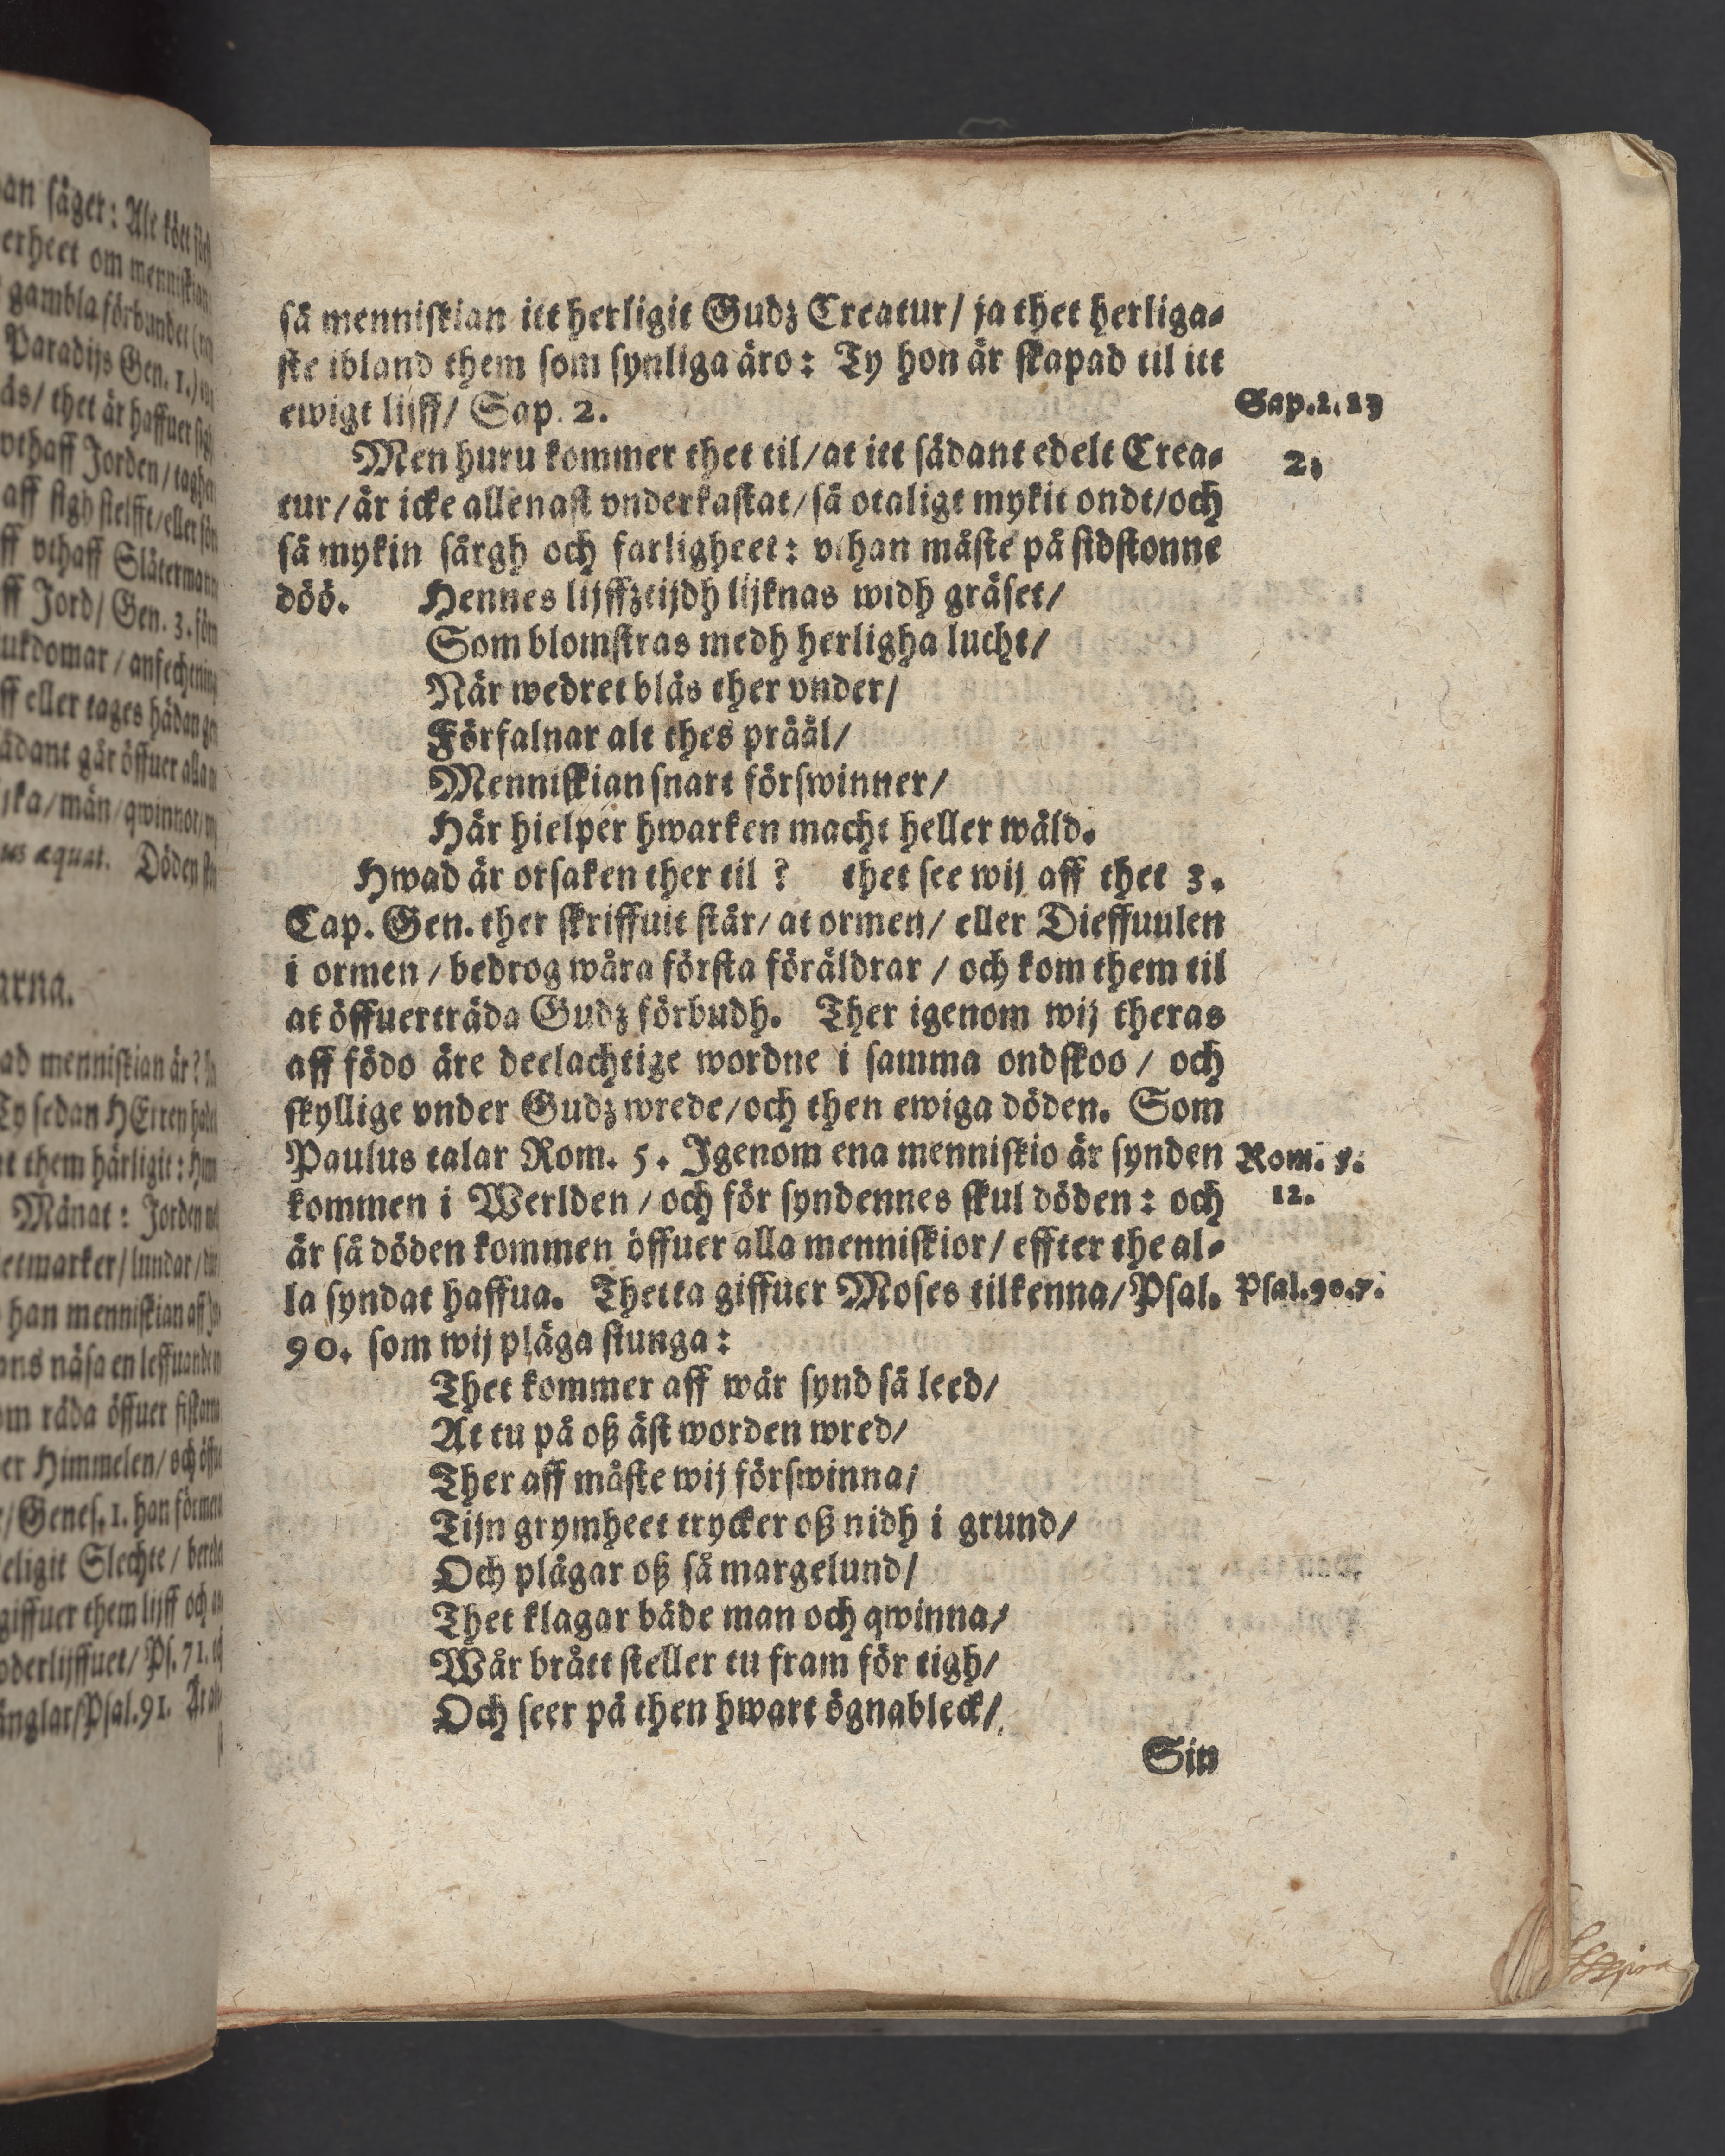 an säger: Alt kött
erheet om menniskian
gambla förbundet
Paradijs Gen. 1.)
ås/ thet är haffuer
vthaff Jorden/
aff
ff vthaff
ff Jord/ Gen. 3.
ukdomar /
ff eller tages hädan
ådant går öffuer alla
män/ qwinnor/
æquat. Döden
arna.
ad menniskian är?
Ty sedan HErren
them härligit:
Månat: Jorden
etmarker/ lundar/
han menniskian aff
ans näsa en leffuanden
om råda öffuer
er Himmelen/ och
/Genes. 1. han
eligit Slechte /
giffuer them lijff och
oderlijffuet/ Ps. 71.
änglar/Psal. 91.
så menniskian itt herligit Gudz Creatur/ ja thet herliga-
ste ibland them som synliga äro: Ty hon är skapad til itt
ewigt lijff/ Sap. 2.
Sap.
Men huru kommer thet til/at itt sådant edelt Crea-
2.
tur/är icke allenast vnderkastat/så otaligt mykit ondt/och
så mykin sårgh och farligheet: vthan måste på sidstonne
döö. Hennes lijffztijdh lijknas widh gräset/
Som blomstras medh herligha lucht/
När wedret blås ther vnder/
Förfalnar alt thes pråål/
Menniskian snart förswinner/
Här hielper hwarken macht heller wåld.
Hwad är orsaken ther til? thet see wij aff thet 3.
Cap. Gen. ther skriffuit står/ at ormen/ eller Dieffuulen
i ormen / bedrog wåra första föräldrar / och kom them til
at öffuerträda Gudz förbudh. Ther igenom wij theras
aff födo äre deelachtige wordne i samma ondskoo / och
skyllige vnder Gudz wrede/och then ewiga döden. Som
Paulus talar Rom. 5. Jgenom ena menniskio är synden
Rom. 5.
kommen i Werlden / och för syndennes skul döden: och
12.
är så döden kommen öffuer alla menniskior/ effter the al-
la syndat haffua. Thetta giffuer Moses tilkenna/Psal.
Psal.90.7.
90. som wij pläga siunga:
Thet kommer aff wår synd så leed/
At tu på oß äst worden wred/
Ther aff måste wij förswinna/
Tijn grymheet trycker oß nidh i grund/
Och plågar oß så margelund/
Thet klagar både man och qwinna/
Wår brått steller tu fram för tigh/
Och seer på then hwart ögnableck/
Sin